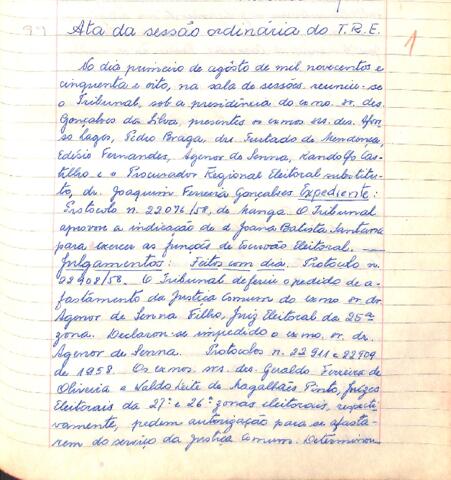 Ata da sessão ordinária do T.R.E.
1
No dia primeiro de agôsto de mil novecentos e
cinquenta e oito, na sala de sessões, reuniu-se
o Tribunal, sob a presidência do exmo. sr. des.
Gonçalves da Silva, presentes os exmos srs. des. Afon-
so Lages, Pedro Braga, drs. Furtado de Mendonça,
Edésio Fernandes, Agenor de Senna, Randolfo Cas-
tilho e o Procurador Regional Eleitoral substitu-
to, dr. Joaquim Ferreira Gonçalves. Expediente:
Protocolo n. 22.076/58, de Manga. O Tribunal
aprovou a indicação de d. Joana Batista Santana
para exercer as funções de Escrivão Eleitoral.
Julgamentos: Feitos com dia. Protocolo n.
22908/58. O Tribunal deferiu o pedido de a-
fastamento da Justiça Comum do exmo sr. dr.
Agenor de Senna Filho, Juiz Eleitoral da 25a
zona. Declarou-se impedido o exmo. sr. dr.
Agenor de Senna. Protocolos n. 22911 e 22909
de 1958. Os exmos srs. drs. Geraldo Ferreira de
Oliveira e Waldo Leite de Magalhães Pinto, Juizes
Eleitorais da 27ª e 26ª zonas eleitorais, respecti-
vamente, pedem autorização para se afasta-
rem do serviço da Justiça Comum. Determinou